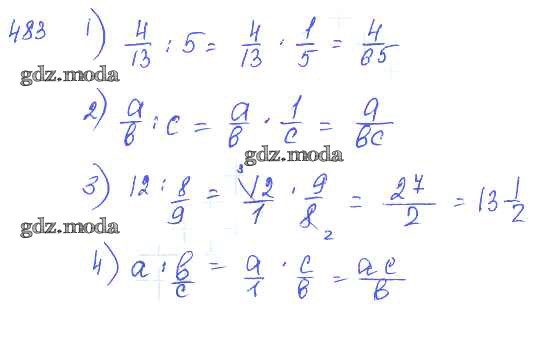 483 1) 4/13 : 5 = 4/13 · 1/5 = 4/65
gdz.moda
2) a/b : c = a/b · 1/c = a/bc
gdz.moda
3) 12 : 8/9 = ³12/1 · 9/8₂ = 27/2 = 13 1/2
gdz.moda
4) a : b/c = a/1 · c/b = ac/b